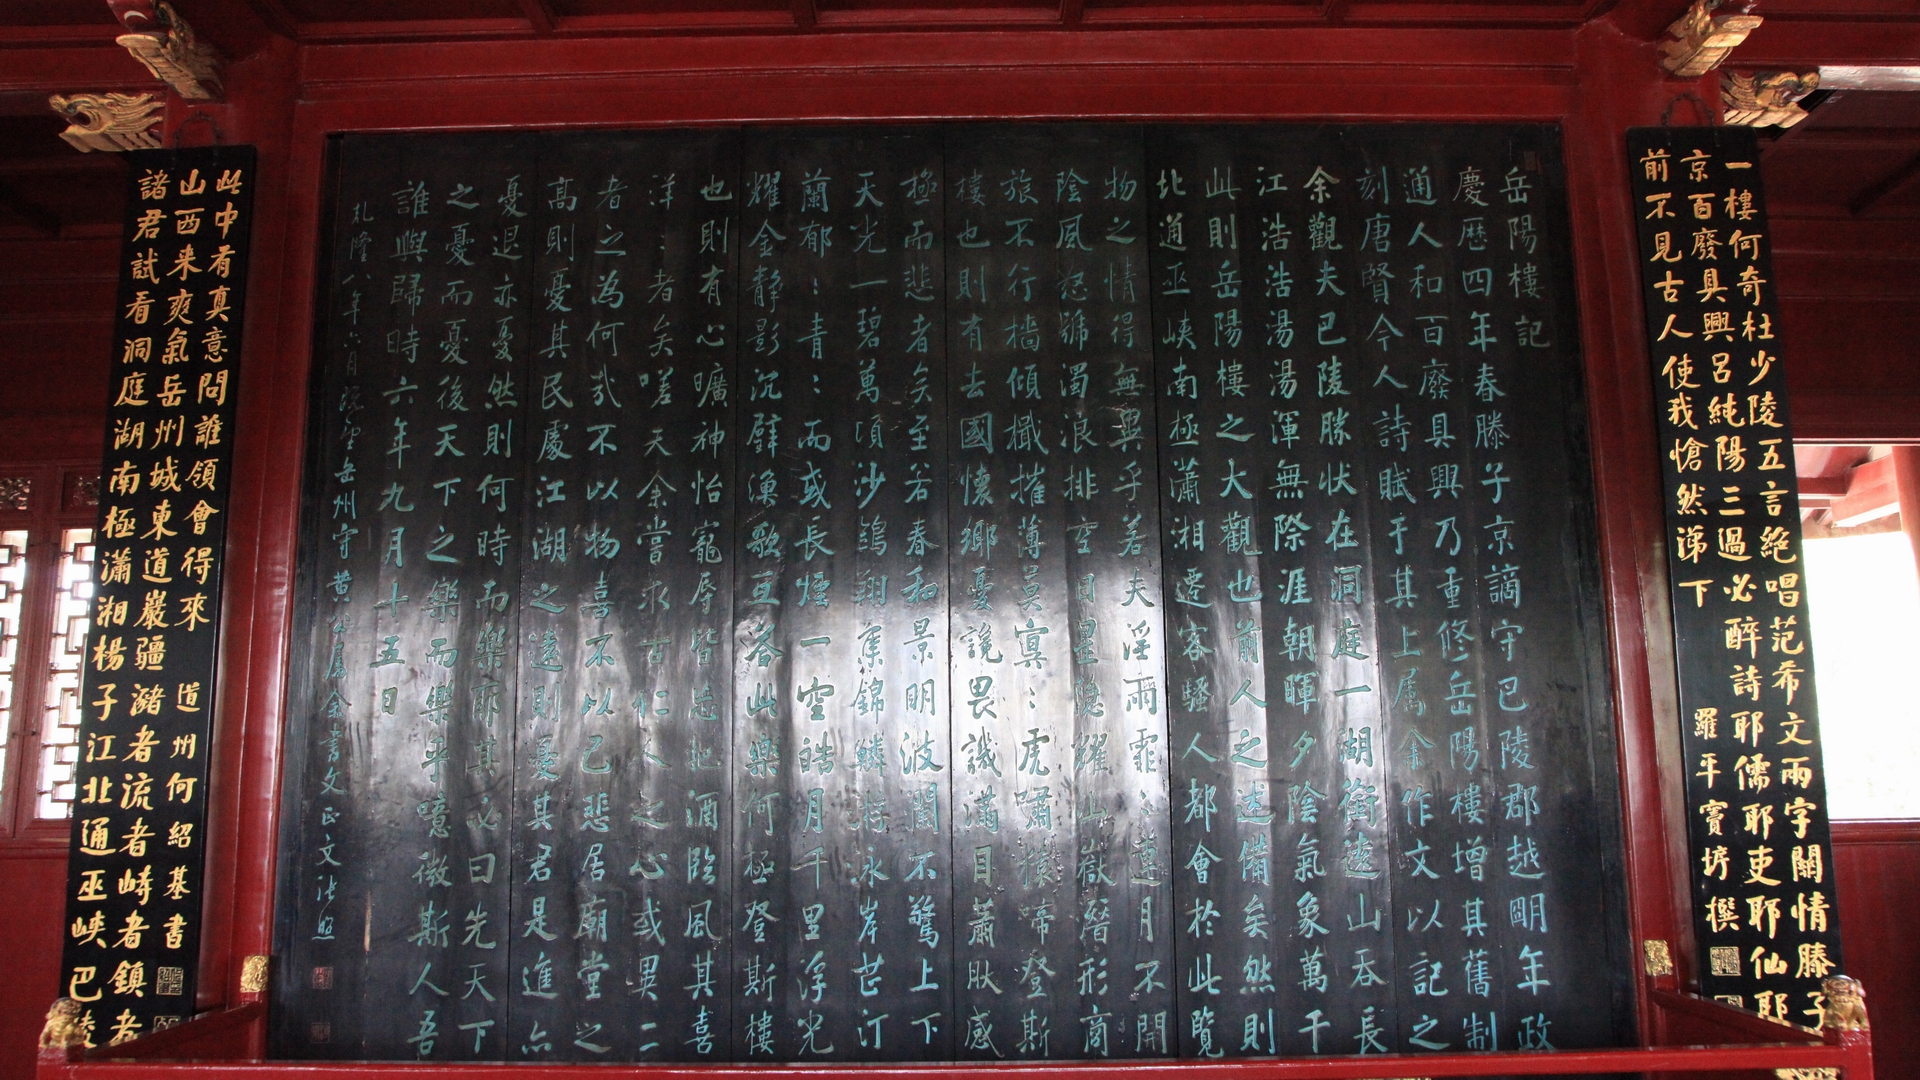 一樓何奇杜少陵五言絕唱范希文兩字關情滕子
京百廢具興呂純陽三過必醉詩耶儒耶吏耶仙耶
前不見古人使我愴然涕下
羅平竇垿撰
岳陽樓記
慶歷四年春滕子京謫守巴陵郡越明年政
通人和百廢具興乃重修岳陽樓增其舊制
刻唐賢今人詩賦于其上屬余作文以記之
余觀夫巴陵勝狀在洞庭一湖銜遠山吞長
江浩浩湯湯渾無際涯朝暉夕陰氣象萬千
此則岳陽樓之大觀也前人之述備矣然則
北通巫峽南極瀟湘遷客騷人都會於此覽
物之情得無異乎若夫淫雨霏:連月不開
陰風怒號濁浪排空日星隱耀山嶽潛形商
旅不行檣傾檝摧薄莫冥:虎嘯猿啼登斯
樓也則有去國懷鄉憂讒畏譏滿目蕭然感
極而悲者矣至若春和景明波瀾不驚上下
天光一碧萬頃沙鷗翔集錦鱗游泳岸芷汀
蘭郁:青:而或長煙一空皓月千里浮光
耀金靜影沉璧漁歌互答此樂何極登斯樓
也則有心曠神怡寵辱皆忘把酒臨風其喜
洋:者矣嗟夫余嘗求古仁人之心或異二
者之為何哉不以物喜不以己悲居廟堂之
高則憂其民處江湖之遠則憂其君是進亦
憂退亦憂然則何時而樂耶其必曰先天下
之憂而憂後天下之樂而樂乎噫微斯人吾
誰與歸時六年九月十五日
乾隆八年六月 岳州守黃 屬余書文正文張照
諸君試看洞庭湖南極瀟湘楊子江北通巫峽巴陵
山西来爽氣岳州城東道巖疆瀦者流者峙者鎮者
此中有真意問誰領會得來
道州何紹基書